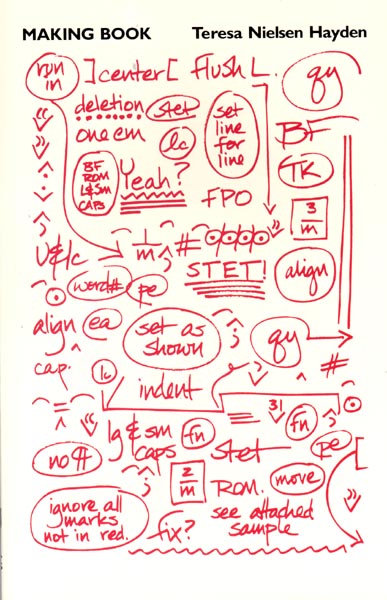 MAKING BOOK Teresa Nielsen Hayden
run in ]center[ flush L. qy
deletion stet set line for line
one em lc BF
BF ROM l&sm CAPS Yeah? FPO TK
3/m
U&lc 1/m #
STET! align
word# pe
align ea set as shown qy
cap. lc indent #
31
no ¶ lg & sm caps fn stet fn pe
2/m ROM. move
ignore all marks not in red. fix? see attached sample